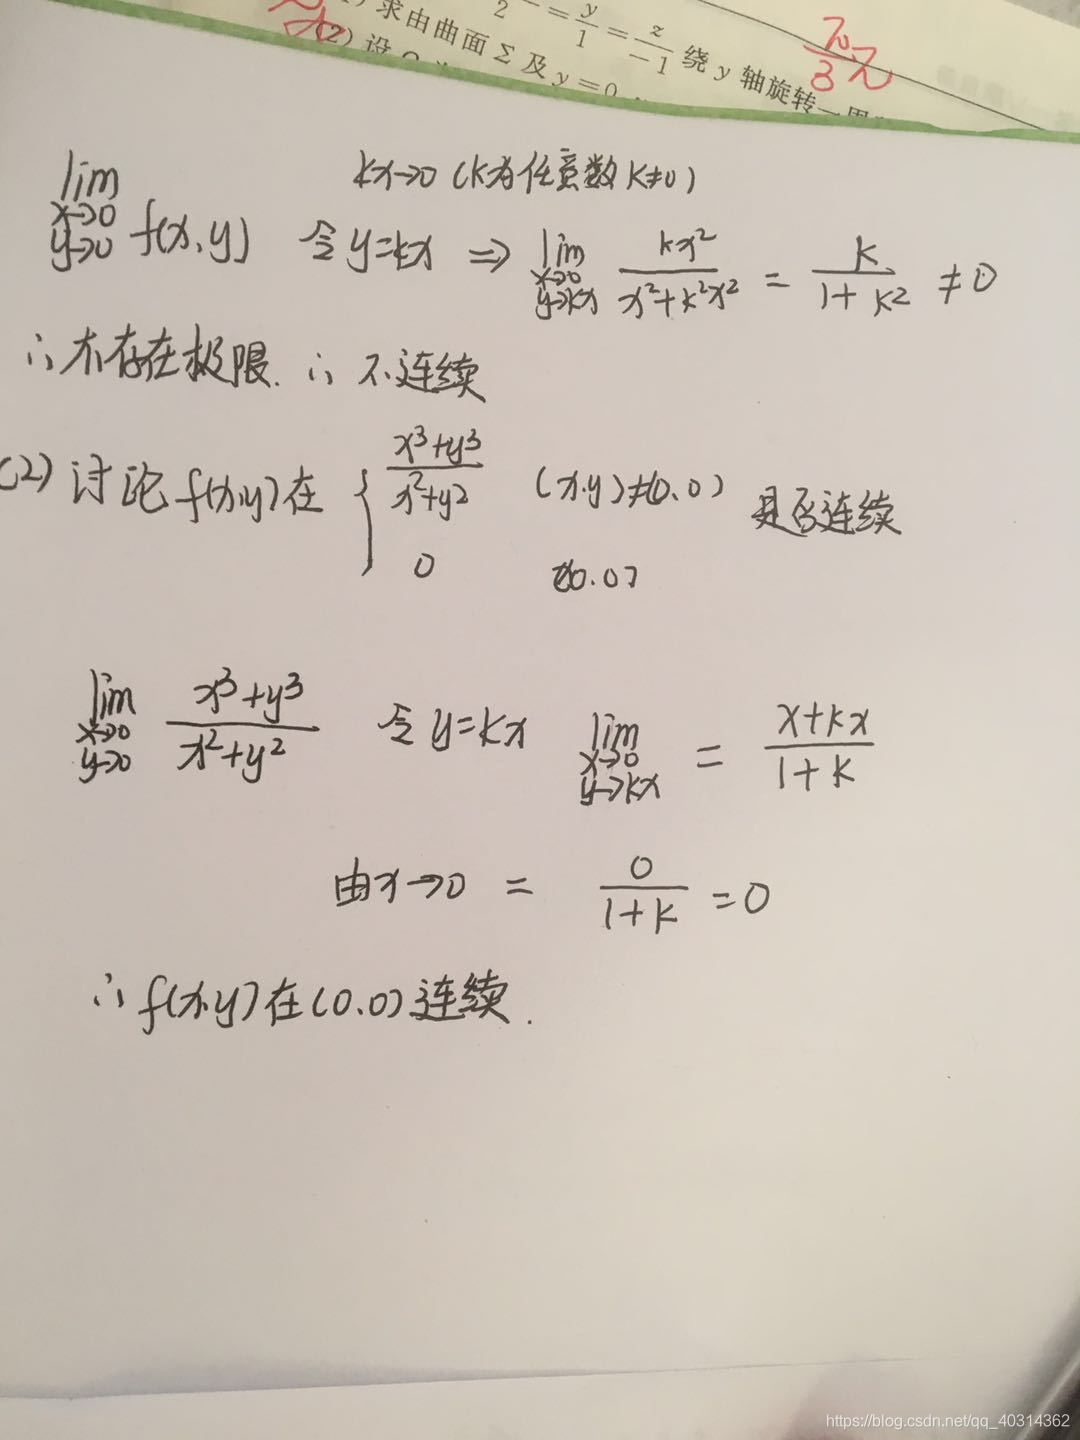 2 = y/1 = z/-1 绕 y 轴旋转一周
) 求由曲面 Σ 及 y=0
(2) 设
π/3 π
kx→0 (k为任意数 k≠0)
lim x→0 y→0 f(x,y) 令 y=kx ⇒ lim x→0 y→kx kx²/(x²+k²x²) = k/(1+k²) ≠ 0
∴ 不存在极限. ∴ 不连续
(2) 讨论 f(x,y) 在 { (x³+y³)/(x²+y²) (x,y)≠(0,0) 是否连续
0 (0,0)
lim x→0 y→0 (x³+y³)/(x²+y²) 令 y=kx lim x→0 y→kx = (x+kx)/(1+k)
由 x→0 = 0/(1+k) = 0
∴ f(x,y) 在 (0,0) 连续.
https://blog.csdn.net/qq_40314362